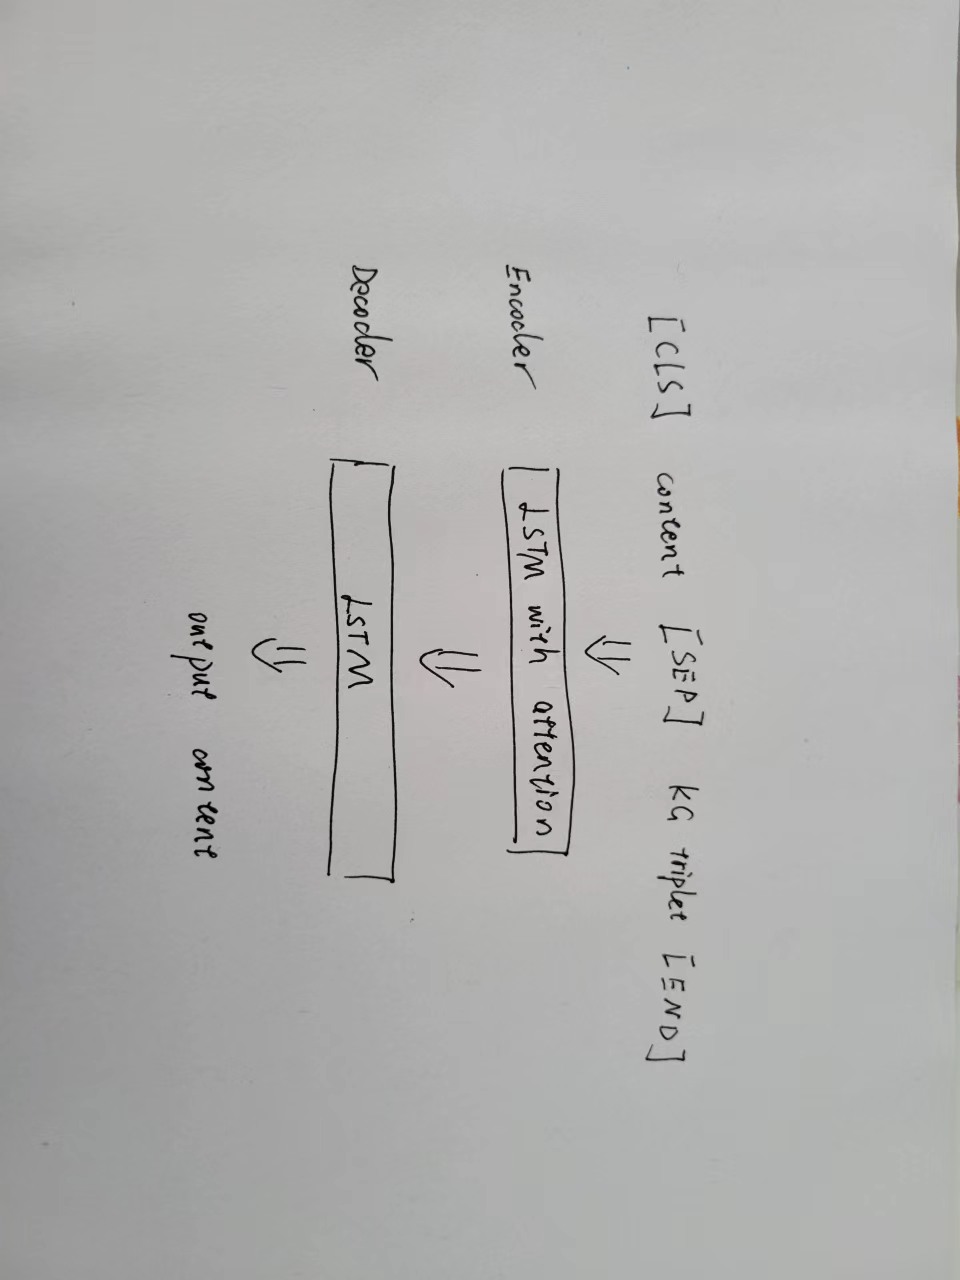 [CLS] content [SEP] KG triplet [END]
Encoder LSTM with attention
Decoder LSTM
output content